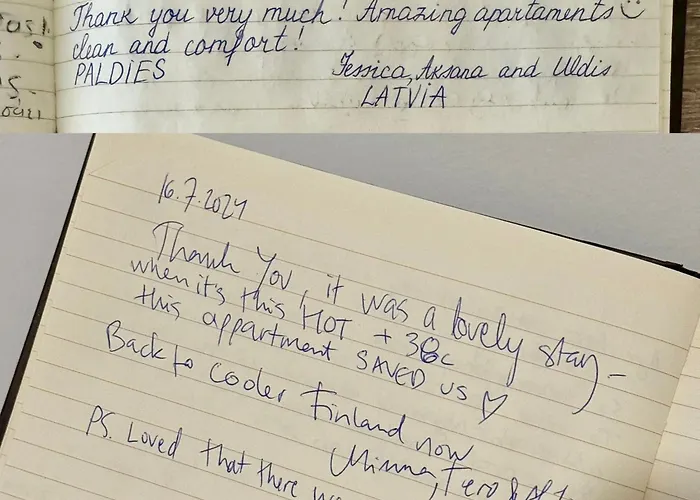 Thank you very much! Amazing apartaments
clean and comfort!
PALDIES
Jessica, Aksana and Uldis
LATVIA
16.7.2024
Thank You, it was a lovely stay –
when it's this HOT + 38c
this appartment SAVED US ♡
Back to cooler Finland now
Minna, Tero &
PS. Loved that there